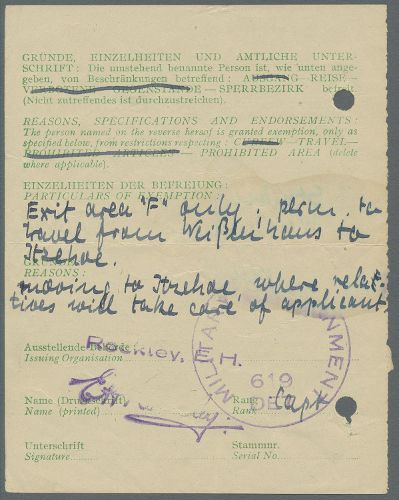 GRÜNDE, EINZELHEITEN UND AMTLICHE UNTER-
SCHRIFT: Die umstehend benannte Person ist, wie unten ange-
geben, von Beschränkungen betreffend: AUSGANG—REISE—
VERBOTENE GEGENSTÄNDE—SPERRBEZIRK befreit
(Nicht zutreffendes ist durchzustreichen).
REASONS, SPECIFICATIONS AND ENDORSEMENTS:
The person named on the reverse hereof is granted exemption, only as
specified below, from restrictions respecting: CURFEW—TRAVEL—
PROHIBITED ARTICLES—PROHIBITED AREA (delete
where applicable).
EINZELHEITEN DER BEFREIUNG:
PARTICULARS OF EXEMPTION:
Exit area "F" only, perm. to
travel from Weißenhaus to
Itzehoe.
GRÜNDE:
REASONS:
moving to Itzehoe where rela-
tives will take care of applicant
Ausstellende Behörde
Issuing Organisation
Rockley, H.
MILITARY GOVERNMENT
619
DET
Name (Druckschrift)
Name (printed)
Rang
Rank
Capt
Unterschrift
Signature
Stammnr.
Serial No.